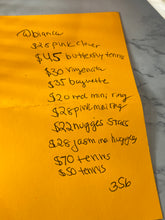 @bianca
$28 pink clover
$45 butterfly tennis
$30
$35 baguette
$20 red mini ring
$28 pink mini ring
$22 huggies stars
$28 jasmine huggies
$70 tennis
$50 tennis
356